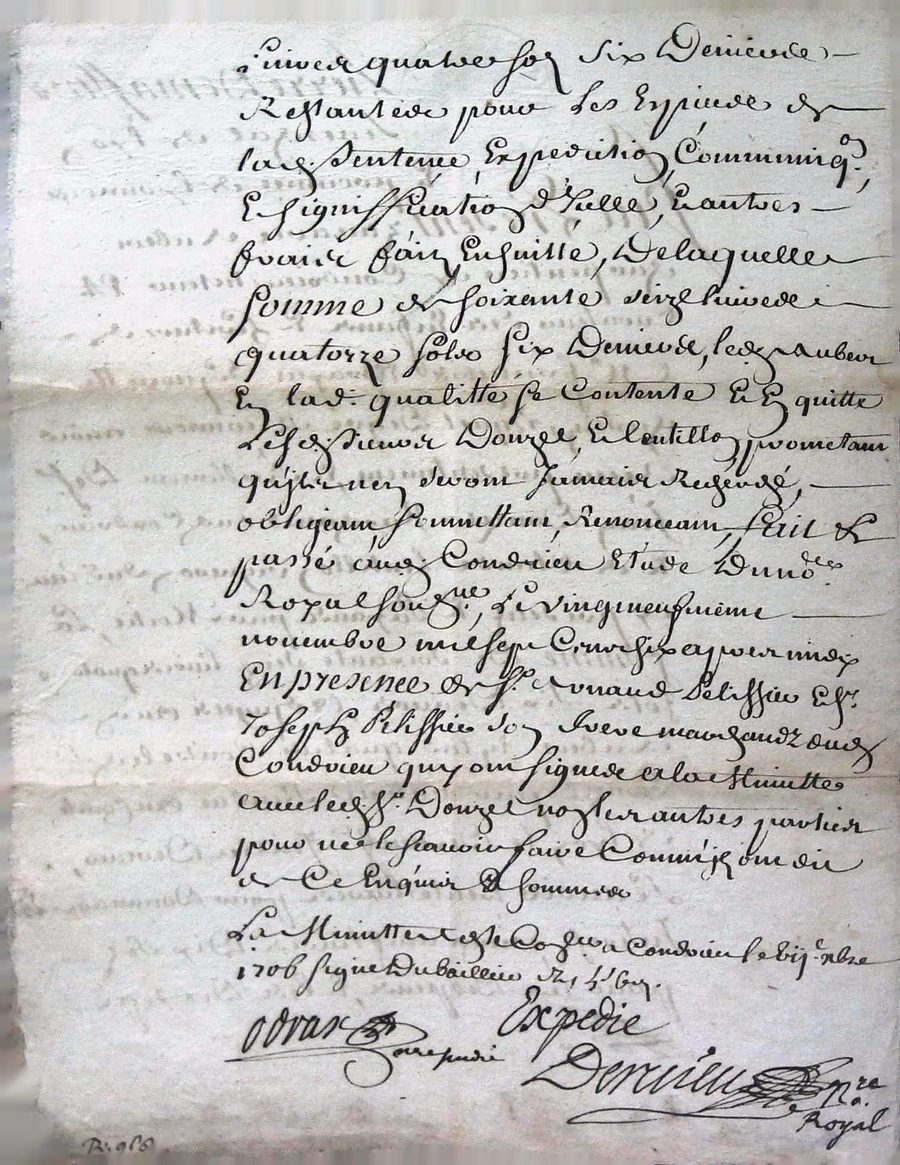 Livres quatre sols six Deniers
Restantes pour Les Espices de
lad. Sentence, Expedition, Commun.on,
Et signiffication d'Icelle, Et autres
fraicts faits Ensuitte, De laquelle
somme de soixante seize livres
quatorze sols six Deniers, led. Aubert
En lad. qualitte se Contente Et En quitte
Lesd. Sieurs Douzel, Et promettant
qu'ils n'en seront Jamais
obligeant, soumettant, Renonceant, fait Et
passé aud. Condrieu Etude Du no.re
Royal soub.ne, Le vingtneufvieme
novembre mil sept Cent six apres midy
En presence de Sr. Pelissier Et Sr.
Joseph Pelissier son frere marchandz dud.
Condrieu quy ont signés a la Minutte
avec led. Sr. Douzel non les autres parties
pour ne le scavoir faire Comm' ont dit
de Ce Enquis Et sommés
La Minutte est Con.llee a Condrieu le
1706 signé Dubaillier
Expedié
Dervieu n.re
Royal
R. 968